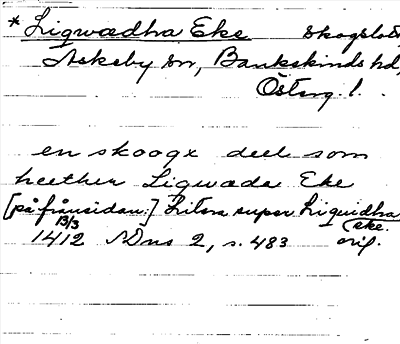 * Ligwædha Eke skogslott
Askeby sn, Bankekinds hd,
Österg. l.
en skoogx deel som
heether Ligwæda Eke
[på frånsidan:] Litera super Liquidha
eke.
13/3
1412 SDns 2, s. 483 orig.